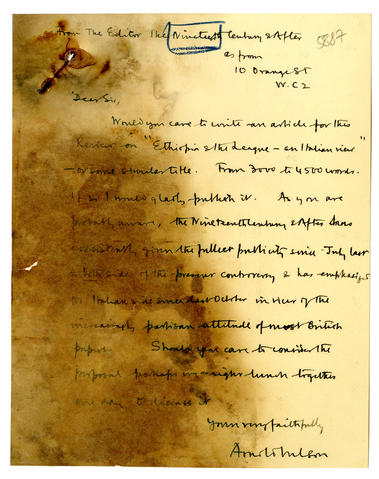 From The Editor The Nineteenth Century & After
5887
as from
10 Orange St
W.C.2
Dear Sir,
Would you care to write an article for this
Review on "Ethiopia & the League – an Italian view"
or some similar title. From 3000 to 4500 words.
If so I would gladly publish it. As you are
probably aware, the Nineteenth Century & After has
consistently given the fullest publicity since July last
to both sides of the present controversy & has emphasized
the Italian side since last October in view of the
increasingly partisan attitude of most British
papers. Should you care to consider the
proposal perhaps we might lunch together
one day to discuss it
Yours very faithfully
Arnold Wilson